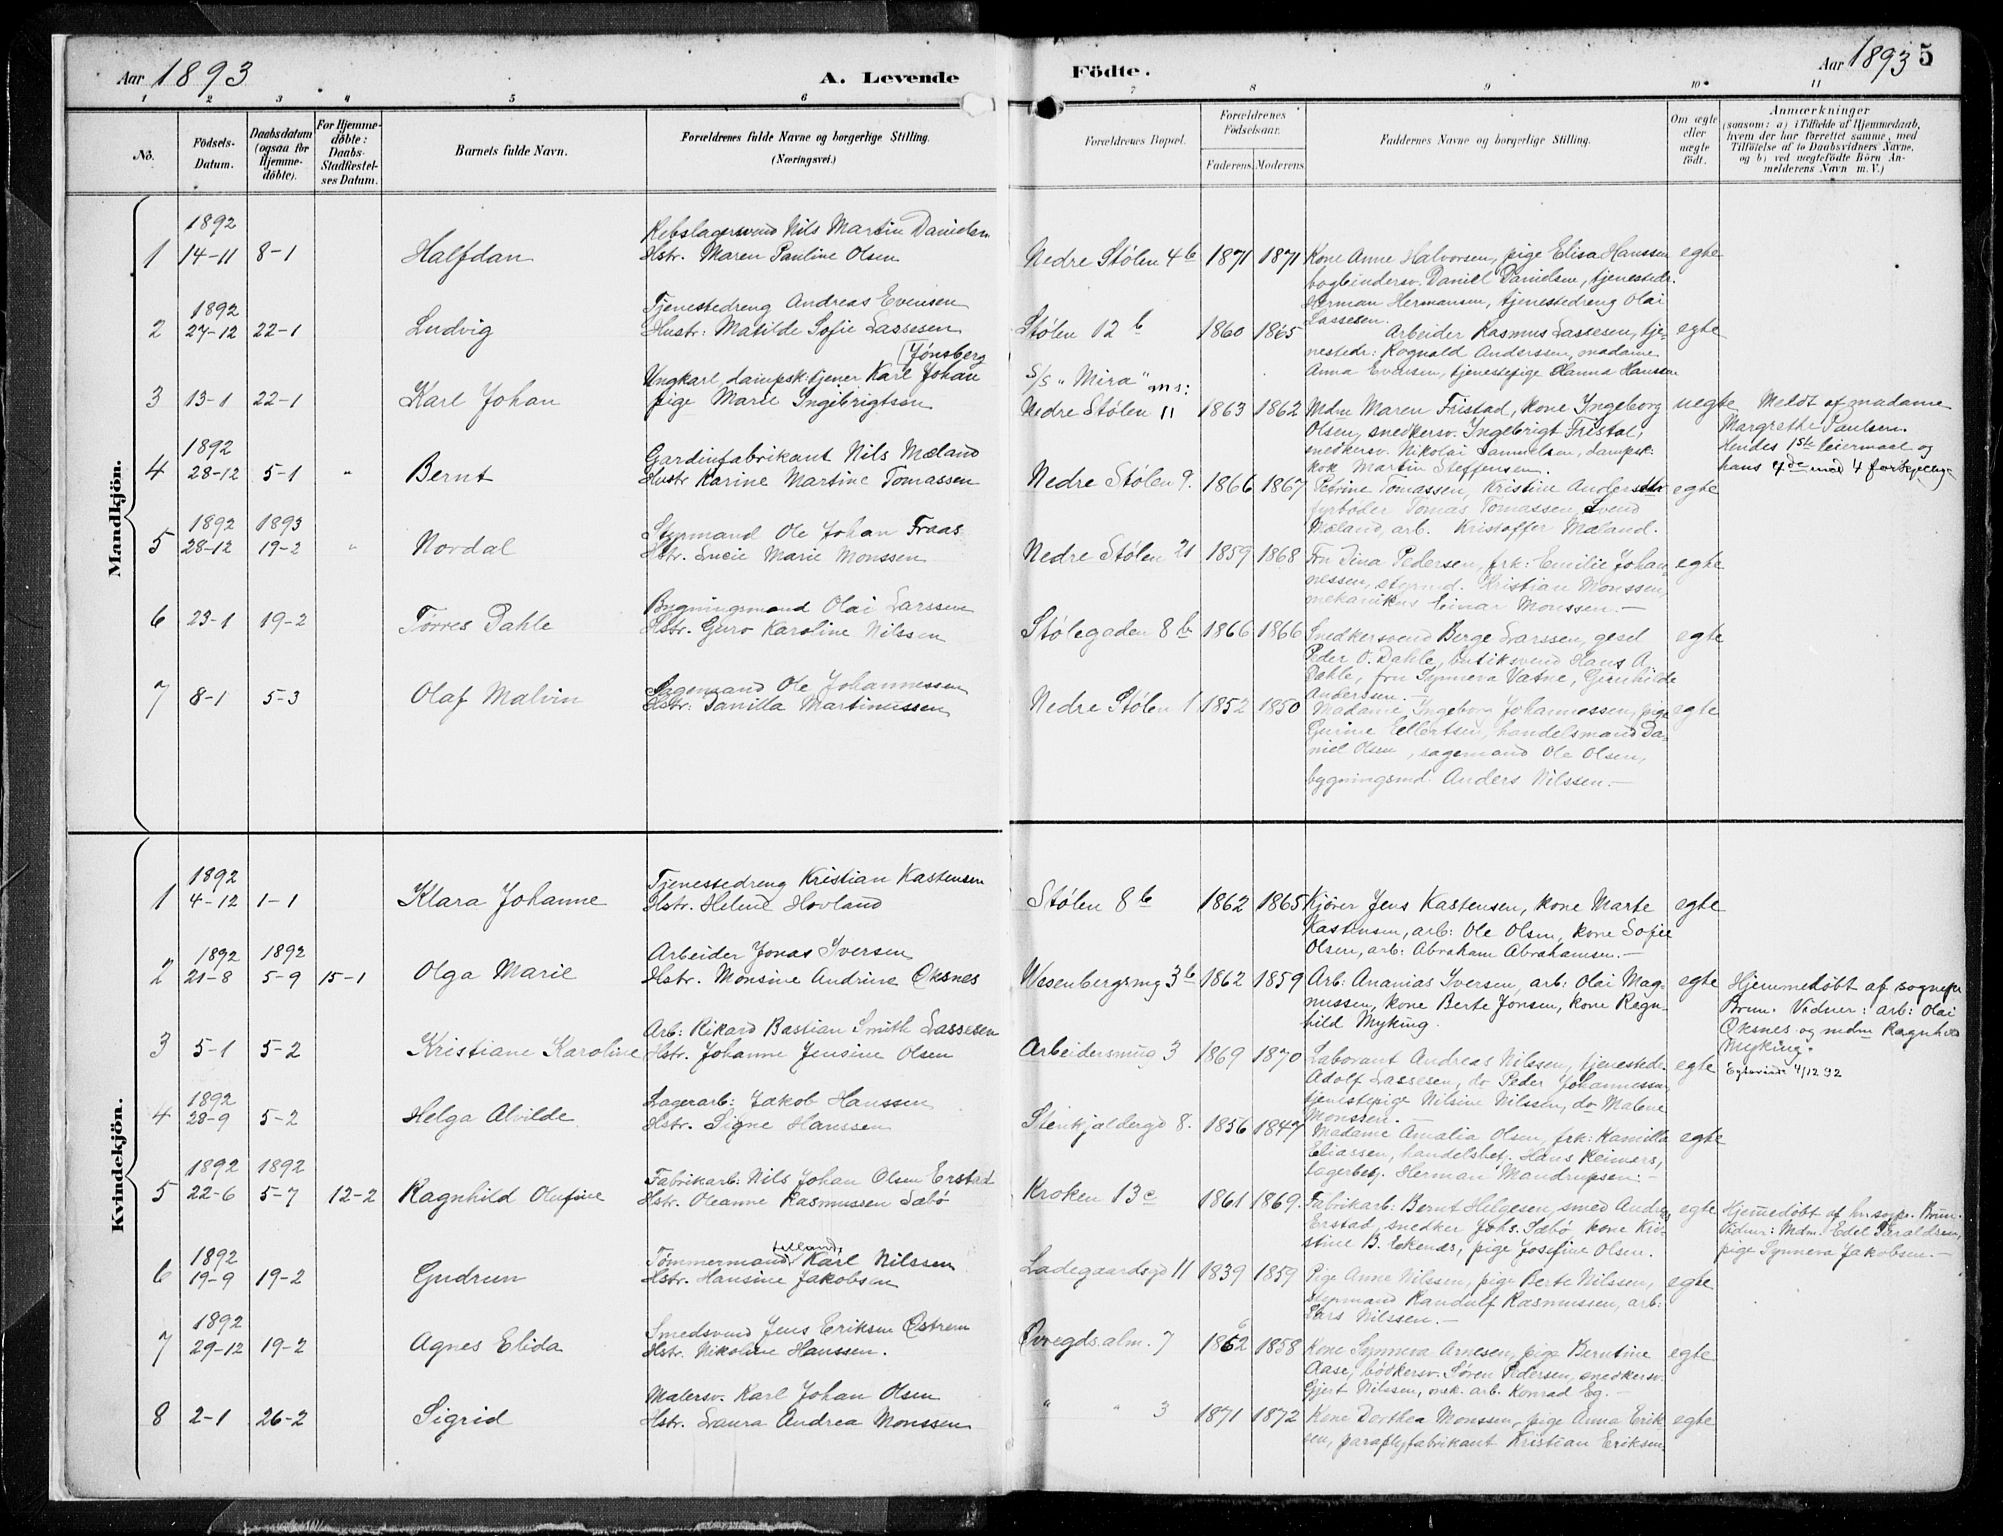 Aar 1893
A. Levende
Födte.
Aar 1893
5
1 2 3 4 5 6 7 8 9 10 11
No.
Födsels-
Datum.
Daabsdatum
(ogsaa for
Hjemme-
döbte).
For Hjemme-
döbte:
Daabs-
Stadfestel-
ses Datum.
Barnets fulde Navn.
Forældrenes fulde Navne og borgerlige Stilling.
(Næringsvei.)
Forældrenes Bopæl.
Forældrenes
Födselsaar.
Faderens. Moderens.
Faddernes Navne og borgerlige Stilling.
Om ægte
eller
uægte
födt.
Anmærkninger
(saasom: a) i Tilfælde af Hjemmedaab,
hvem der har forrettet samme, med
Tilföielse af to Daabsvidners Navne,
og b) ved uægtefödte Börn An-
melderens Navn m. V.)
Mandkjön.
1892
1 14-11 8-1 Halfdan
Rebslagersvend Nils Martin Danielsen
Hstr. Maren Pauline Olsen
Nedre Stølen 4b 1871 1871
Kone Anne Halvorsen, pige Elisa Hanssen
bogbindersv. Daniel Danielsen, tjenestedr.
Herman Hermansen, tjenestedreng Olai
Lassesen.
egte
1892
2 27-12 22-1 Ludvig
Tjenestedreng Andreas Evensen
Hustr: Matilde Sofie Lassesen
Stølen 12 b 1860 1865
Arbeider Rasmus Lassesen, tje-
nestedr: Rognald Anderssen, madame
Anna Evensen, tjenestepige Hanna Hansen
egte
3 13-1 22-1 Karl Johan
Jønsberg
Ungkarl, dampsk:tjener Karl Johan
pige Marie Ingebrigtsen
S/S "Mira"
Nedre Stølen 11 1863 1862
Mdm Maren Fristad, kone Ingeborg
Olsen, snedkersv. Ingebrigt Fristad,
snedkersv. Nikolai Samuelsen, dampsk:
kok Martin Steffensen.
uegte
Meldt af madame
Margrethe Paulsen.
Hendes 1ste leiermaal og
hans 4de med 4 forskjellige
1892
4 28-12 5-1 " Bernt
Gardinfabrikant Nils Mæland
Hustr Karine Martine Tomassen
Nedre Stølen 9. 1866 1867
Petrine Tomassen, Kristine Anders
fyrbøder Tomas Tomassen, Svend
Mæland, arb. Kristoffer Mæland.
egte
1892 1893
5 28-12 19-2 " Nordal
Styrmand Ole Johan Fraas
Hstr. Lucie Marie Monssen
Nedre Stølen 21 1859 1868
Fru Dina Pedersen, frk: Emilie Johan-
nessen, styrmd. Kristian Monssen,
mekanikus Einar Monssen.—
egte
6 23-1 19-2 Tørres Dahle
Bygningsmand Olai Larssen
Hstr. Guro Karoline Nilssen
Stølegaden 8b 1866 1866
Snedkersvend Berge Larssen, gesel
Peder O. Dahle, butiksvend Hans A.
Dahle, fru Synneva Vatne, Gunhilde
Anderssen.—
egte
7 8-1 5-3 Olaf Malvin
Sagemand Ole Johannessen
Hstr: Janilla Martinussen
Nedre Stølen 1 1852 1850
Madame Ingeborg Johannessen, pige
Gurine Ellertsen, handelsmand Da-
niel Olsen, sagemand Ole Olsen,
bygningsmd. Anders Nilssen.—
egte
Kvindekjön.
1892
1 4-12 1-1 Klara Johanne
Tjenestedreng Kristian Kastensen
Hstr. Helene Hovland
Stølen 8b 1862 1865
Kjører Jens Kastensen, kone Marte
Kastensen, arb: Ole Olsen, kone Sofie
Olsen, arb: Abraham Abrahamsen.—
egte
1892 1892
2 21-8 5-9 15-1 Olga Marie
Arbeider Jonas Iversen
Hstr. Monsine Andrine Øksnes
Wesenbergsmg 3b 1862 1859
Arb: Ananias Iversen, arb: Olai Mag-
nussen, kone Berte Jonsen, kone Ragn-
hild Myking.
egte
Hjemmedøbt af sognepr
Brun. Vidner: arb: Olai
Øksnes og mdm Ragnhild
Myking.
4/12 92
3 5-1 5-2 Kristiane Karoline
Arb: Rikard Bastian Smith Lassesen
Hstr. Johanne Jensine Olsen
Arbeidersmug 3 1869 1870
Laborant Andreas Nilssen, tjenestedr.
Adolf Lassesen, do Peder Johannessen,
tjenestepige Nilsine Nilssen, do Malene
Monssen.—
egte
1892
4 28-9 5-2 Helga Alvilde
Lagerarb: Jakob Hanssen
Hstr. Signe Hanssen
Stenkjeldergd 8. 1856 1847
Madame Amalia Olsen, frk: Kamilla
Eliassen, handelsbet. Hans Reimers,
lagerbetj. Herman Mandrupsen.—
egte
1892 1892
5 22-6 5-7 12-2 Ragnhild Olufine
Fabrikarb: Nils Johan Olsen Erstad
Hstr. Oleanne Rasmussen Sæbø
Kroken 13c 1861 1869.
Fabrikarb: Bernt Helgesen, smed Andreas
Erstad, snedker Johs. Sæbø kone Kri-
stine B. Ekenæs, pige Josefine Olsen.
egte
Hjemedøbt af hr. sogpr. Brun.
Vidner: Mdm. Edel Haraldsen,
pige Synneva Jakobsen.—
1892
6 19-9 19-2 Gudrun
Tømmermand Karl Nilssen
Hstr. Hansine Jakobsen
Ladegaardsgd 11 1839 1859
Pige Anne Nilssen, pige Berte Nilssen,
styrmand Randulf Rasmussen, arb:
Lars Nilssen.—
egte
1892
7 29-12 19-2 Agnes Elida
Smedsvend Jens Eriksen Østrem
Hstr. Nikoline Hanssen.
Øvregds.alm. 7 1862 1858
Kone Synneva Arnesen, pige Berntine
Aase, bødkersv. Søren Pedersen, snedkersv.
Gjert Nilssen, mek. arb. Konrad Eg.—
egte
8 2-1 26-2 Sigrid
Malersv. Karl Johan Olsen
Hstr. Laura Andrea Monssen
" " 3 1871 1872
Kone Dorthea Monssen, pige Anna Erik
sen, paraplyfabrikant Kristian Eriksen
egte